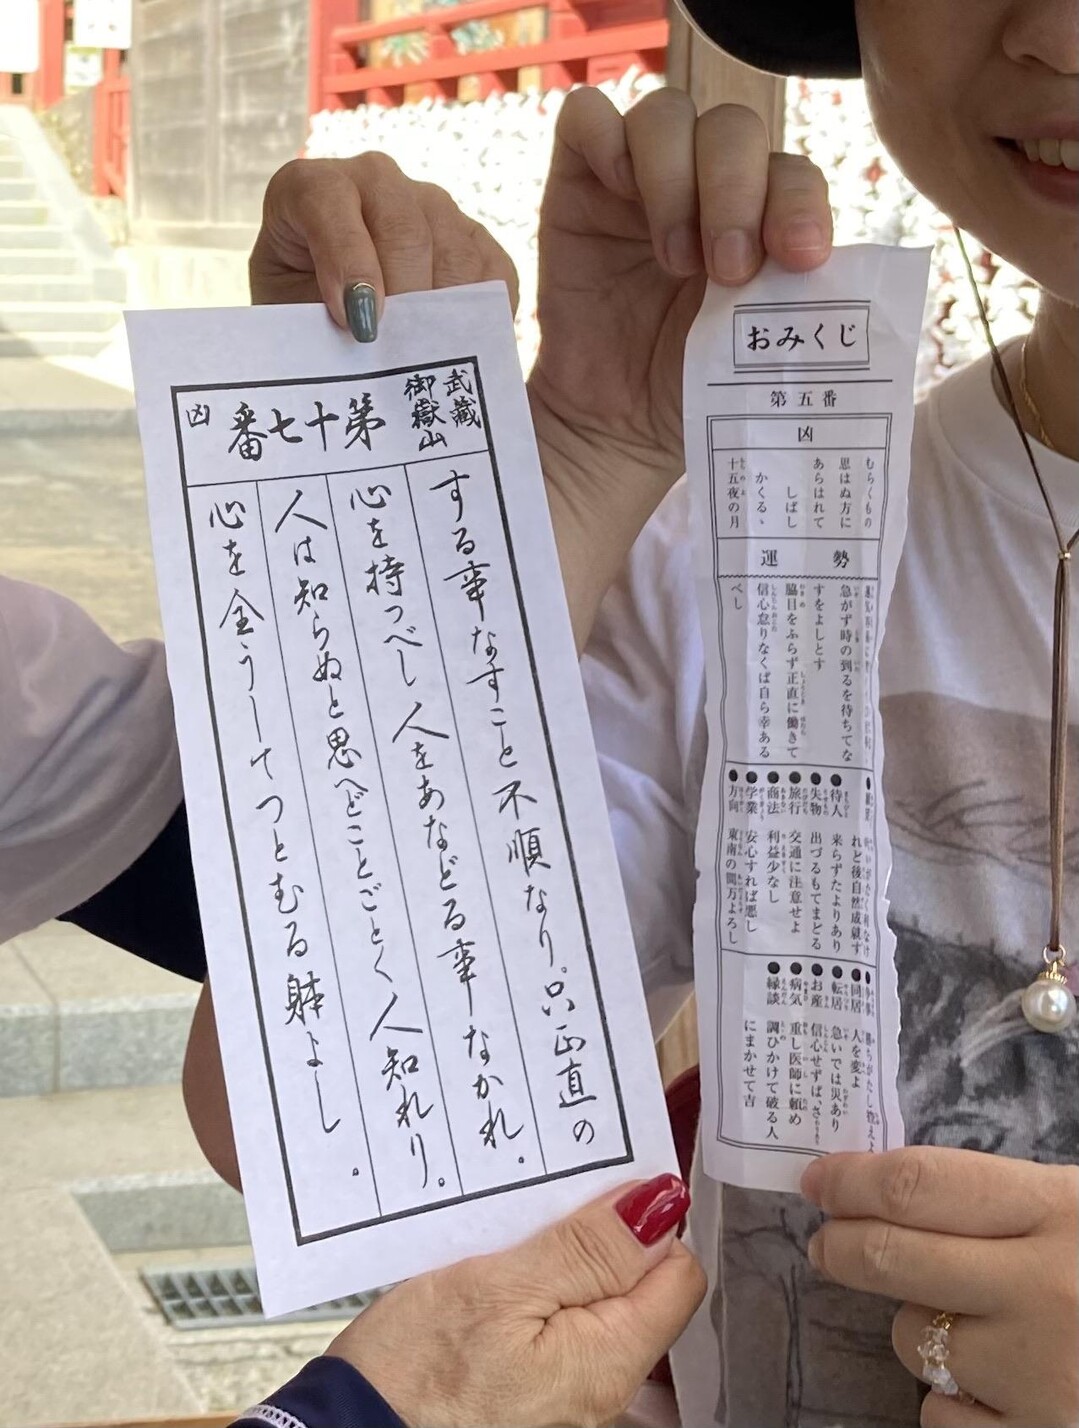 武蔵
御嶽山
第十七番
凶
する事なすこと不順なり。只正直の
心を持つべし人をあなどる事なかれ。
人は知らぬと思へどことごとく人知れり。
心を全うしてつとむる躰よし。
おみくじ
第五番
凶
むらくもの
思はぬ方に
あらはれて
しばし
かくるゝ
十五夜の月
運勢
急がず時の到るを待ちてな
すをよしとす
脇目をふらず正直に働きて
信心怠りなくば自ら幸ある
べし
れど後自然成就す
●待人 来らずたよりあり
●失物 出づるもてまどる
●旅行 交通に注意せよ
●商法 利益少なし
●学業 安心すれば悪し
●方向 東南の間万よろし
勝ちがたし控えよ
●同居 人を変よ
●転居 急いでは災あり
●お産 信心せずば、さわりあり
●病気 重し医師に頼め
●縁談 調ひかけて破る人
にまかせて吉